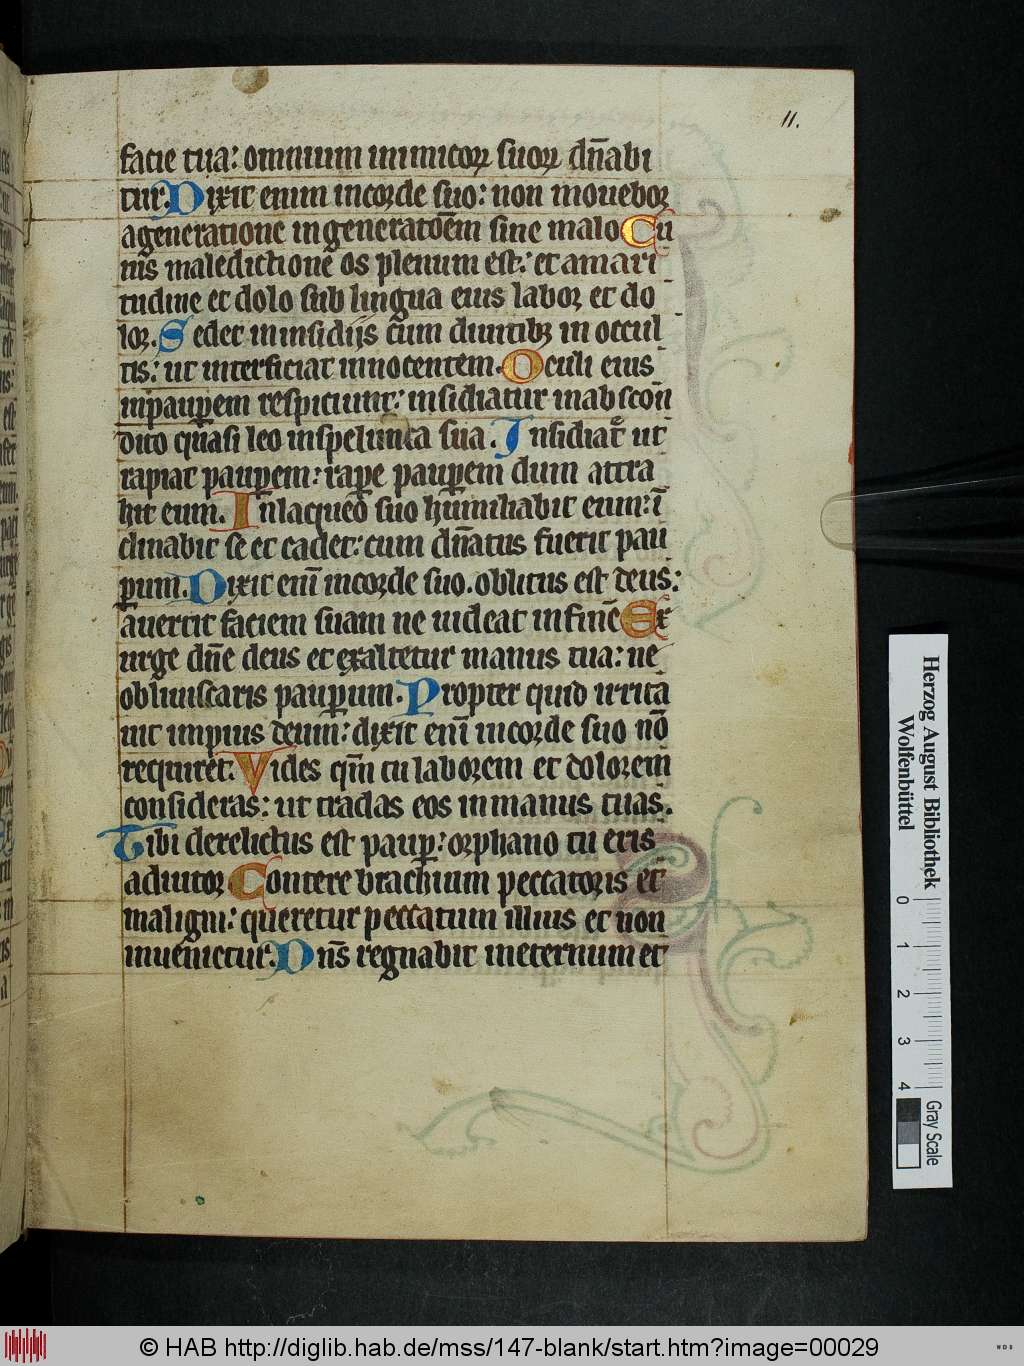 11.
facie tua: omnium inimicoꝝ suoꝝ dn̄abi
tur. Dixit enim incorde suo: non mouebor
ageneratione ingeneratōem sine malo Cu
ius maledictione os plenum est: et amari
tudine et dolo sub lingua eius labor et do
lor. Sedet ininsidijs cum diuitibꝫ in occul
tis: ut interficiat innocentem. Oculi eius
inpauꝑem respiciunt: insidiatur inabscon
dito quasi leo inspelunca sua. Insidiat᷑ ut
rapiat pauꝑem: raꝑe pauꝑem dum attra
hit eum. Inlaqueo suo humiliabit eum: ī
clinabit se et cadet: cum dn̄atus fuerit pau
ꝑum. Dixit enī incorde suo. oblitus est deus:
auertit faciem suam ne uideat infinē Ex
urge dn̄e deus et exaltetur manus tua: ne
obliuiscaris pauꝑum. Propter quid irrita
uit impius deum: dixit enī incorde suo nō
requiret. Vides qm̄ tu laborem et dolorem
consideras: ut tradas eos inmanus tuas.
Tibi derelictus est pauꝑ: orphano tu eris
adiutor Contere brachium peccatoris et
maligni: queretur peccatum illius et non
inuenietur. Dn̄s regnabit ineternum et
Herzog August Bibliothek
Wolfenbüttel
0 1 2 3 4
Gray Scale
© HAB http://diglib.hab.de/mss/147-blank/start.htm?image=00029